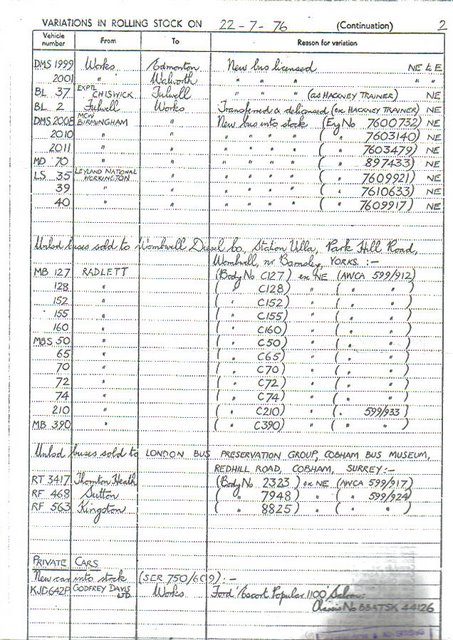 VARIATIONS IN ROLLING STOCK ON 22-7-76 (Continuation) 2
Vehicle number From To Reason for variation
DMS 1999 Works Edmonton New bus licensed NE & E
2001 " Walworth " " " NE
BL 37 EXPTL CHISWICK Fulwell " " " (as HACKNEY TRAINER) NE
BL 2 Fulwell Works Transferred & delicensed (ex HACKNEY TRAINER) NE
DMS 2008 MCW BIRMINGHAM " New bus into stock (Eng No 7600732) NE
2010 " " " " " ( " " 7603140) NE
2011 " " " " " ( " " 7603479) NE
MD 70 " " " " " ( " " 897433) NE
LS 35 LEYLAND NATIONAL WORKINGTON " " " " ( " " 7609921) NE
39 " " " " " ( " " 7610633) NE
40 " " " " " ( " " 7609917) NE
Unlsd buses sold to Wombwell Diesel Co, Station Villa, Park Hill Road,
Wombwell, nr Barnsley, YORKS. :-
MB 127 RADLETT (Body No C127) ex NE (AWCA 599/912)
128 " ( " C128) " ( " " )
152 " ( " C152) " ( " " )
155 " ( " C155) " ( " " )
160 " ( " C160) " ( " " )
MBS 50 " ( " C50) " ( " " )
65 " ( " C65) " ( " " )
70 " ( " C70) " ( " " )
72 " ( " C72) " ( " " )
74 " ( " C74) " ( " " )
210 " ( " C210) " ( " 599/933 )
MB 390 " ( " C390) " ( " " )
Unlsd buses sold to LONDON BUS PRESERVATION GROUP, COBHAM BUS MUSEUM,
REDHILL ROAD, COBHAM, SURREY:-
RT 3417 Thornton Heath (Body No 2323) ex NE (AWCA 599/917)
RF 468 Sutton ( " 7948) " ( " 599/924)
RF 563 Kingston ( " 8825) " ( " " )
PRIVATE CARS
New car into stock (SER 750/6C(9):-
KJD642P GODFREY DAVIS LTD Works Ford 'Escort Popular 1100' Saloon
Chassis No BBATSK 44126